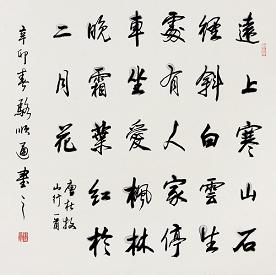 遠上寒山石
徑斜白雲生
處有人家停
車坐愛楓林
晚霜葉紅於
二月花
唐杜牧
山行一首
辛卯春駱順書之